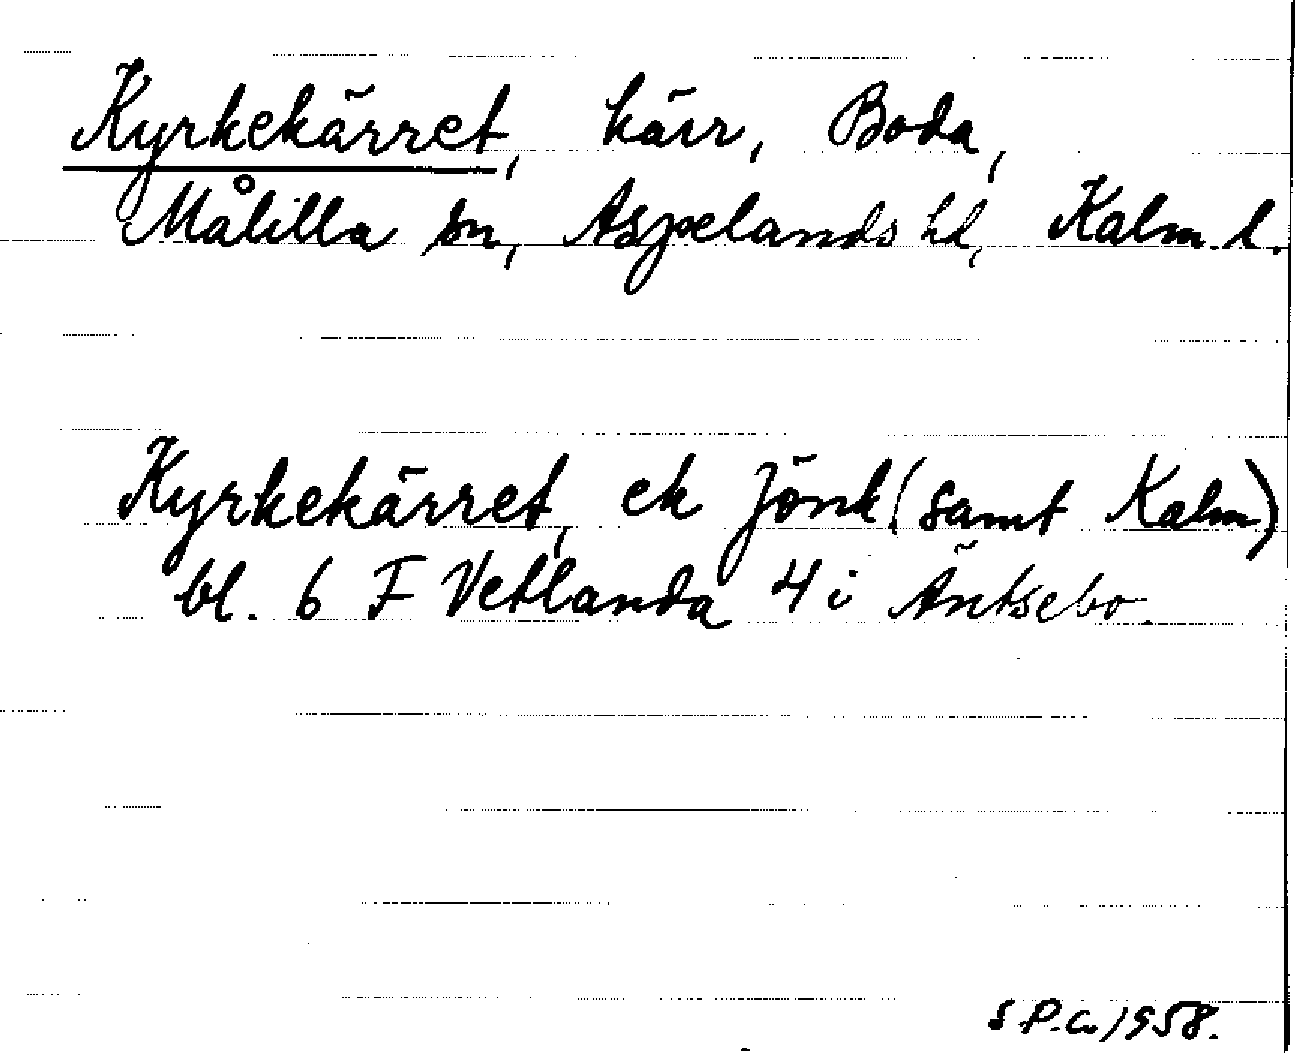 Kyrkekärret, kärr, Boda,
Målilla sn, Aspelands hd, Kalm. l.
Kyrkekärret, ek Jönk (samt Kalm)
bl. 6 F Vetlanda 4 i Äntsebo.
1958.